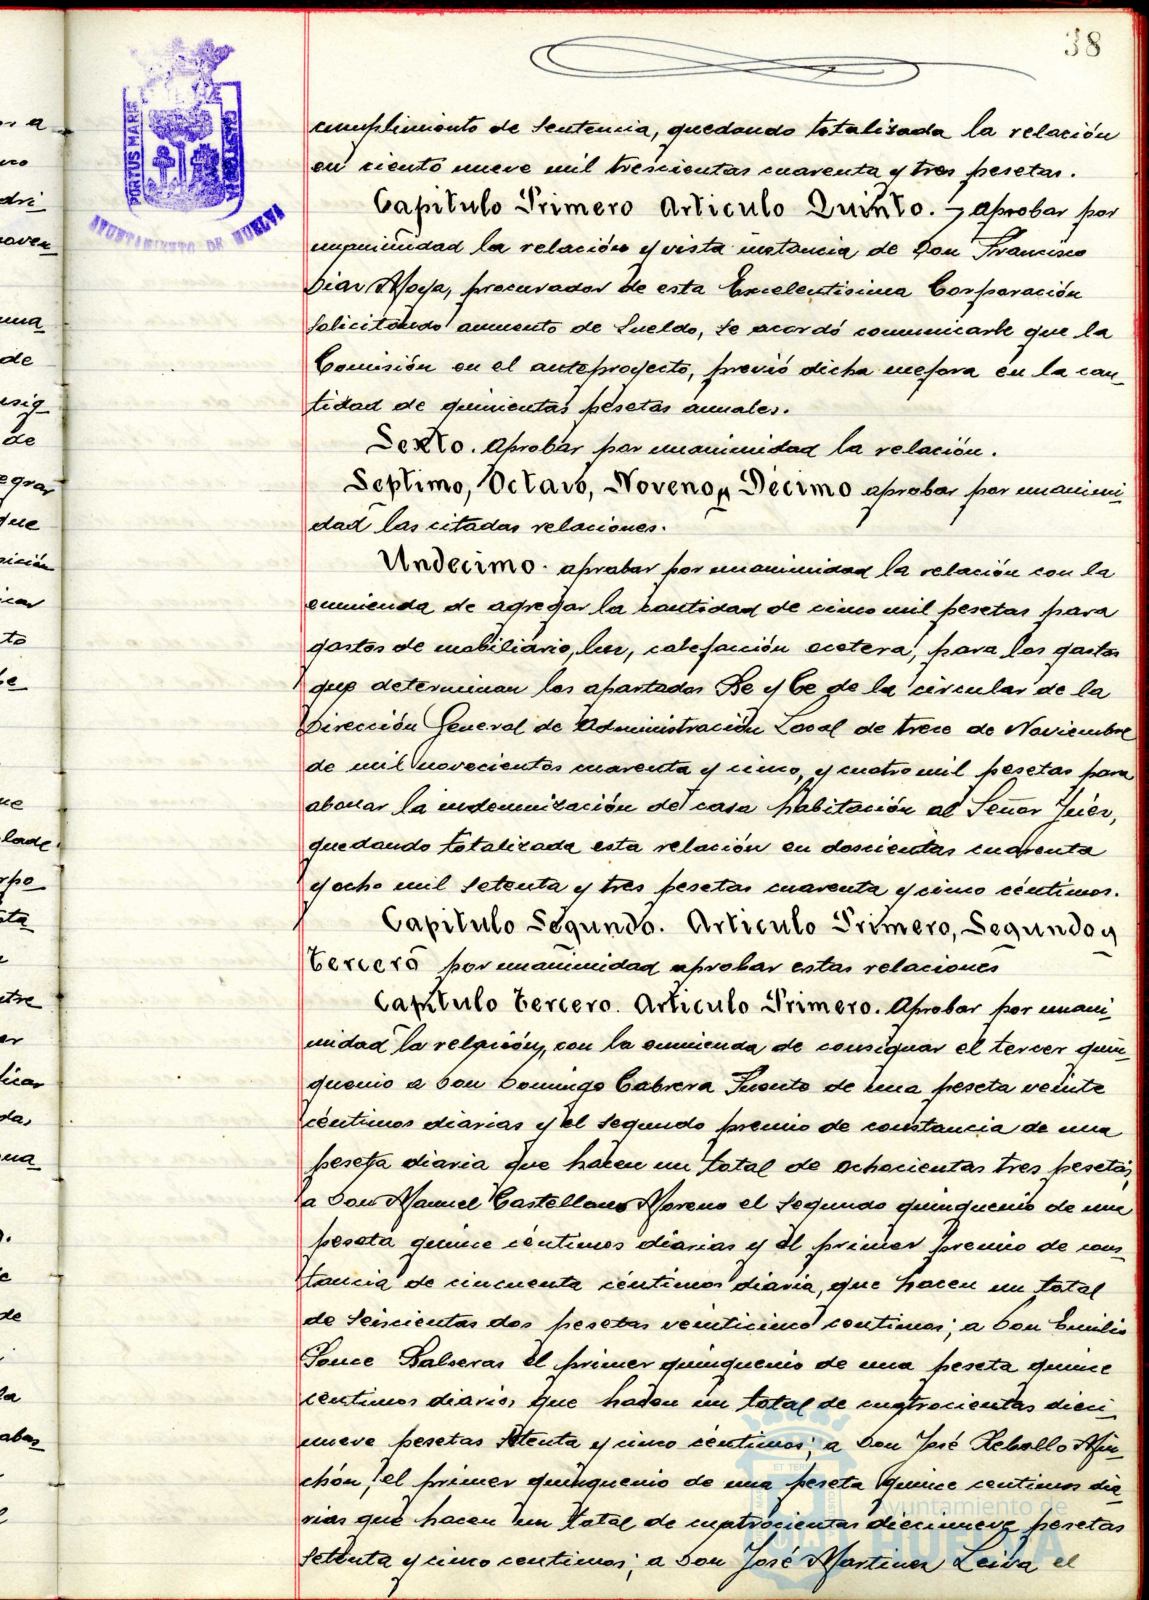 38
PORTUS MARIS
AYUNTAMIENTO DE HUELVA
cumplimiento de sentencia, quedando totalizada la relación
en ciento nueve mil trescientas cuarenta y tres pesetas.
Capitulo Primero Articulo Quinto. aprobar por
unanimidad la relación y vista instancia de Don Francisco
Diaz Moya, procurador de esta Excelentisima Corporación
solicitando aumento de sueldo, se acordó comunicarle que la
Comisión en el anteproyecto, previó dicha mejora en la can-
tidad de quinientas pesetas anuales.
Sexto. aprobar por unanimidad la relación.
Septimo, Octavo, Noveno y Decimo aprobar por unanimi-
dad las citadas relaciones.
Undecimo. aprobar por unanimidad la relación con la
enmienda de agregar la cantidad de cinco mil pesetas para
gastos de mobiliario, luz, calefacción ecetera, para los gastos
que determinan los apartados Be y Ce de la circular de la
Dirección General de Administración Local de trece de Noviembre
de mil novecientos cuarenta y cinco, y cuatro mil pesetas para
abonar la indemnización de casa habitación al Señor Juéz,
quedando totalizada esta relación en doscientas cuarenta
y ocho mil setenta y tres pesetas cuarenta y cinco céntimos.
Capitulo Segundo. Articulo Primero, Segundo y
tercero por unanimidad aprobar estas relaciones
Capitulo tercero. Articulo Primero. Aprobar por unani-
midad la relación, con la enmienda de consignar el tercer quin-
quenio a Don Domingo Cabrera de una peseta veinte
céntimos diarias y el segundo premio de constancia de una
peseta diaria que hacen un total de ochocientas tres pesetas,
a Don Manuel Castellano Moreno el segundo quinquenio de una
peseta quince céntimos diarias y el primer premio de cons-
tancia de cincuenta céntimos diaria, que hacen un total
de seiscientas dos pesetas veinticinco centimos; a Don Emilio
Ponce Balseras el primer quinquenio de una peseta quince
centimos diarios que hacen un total de cuatrocientas dieci-
nueve pesetas setenta y cinco céntimos; a Don José Rebollo Min-
chón, el primer quinquenio de una peseta quince centimos dia-
rias que hacen un total de cuatrocientas diecinueve pesetas
setenta y cinco centimos; a Don José Martinez Leiva el
Ayuntamiento de
HUELVA